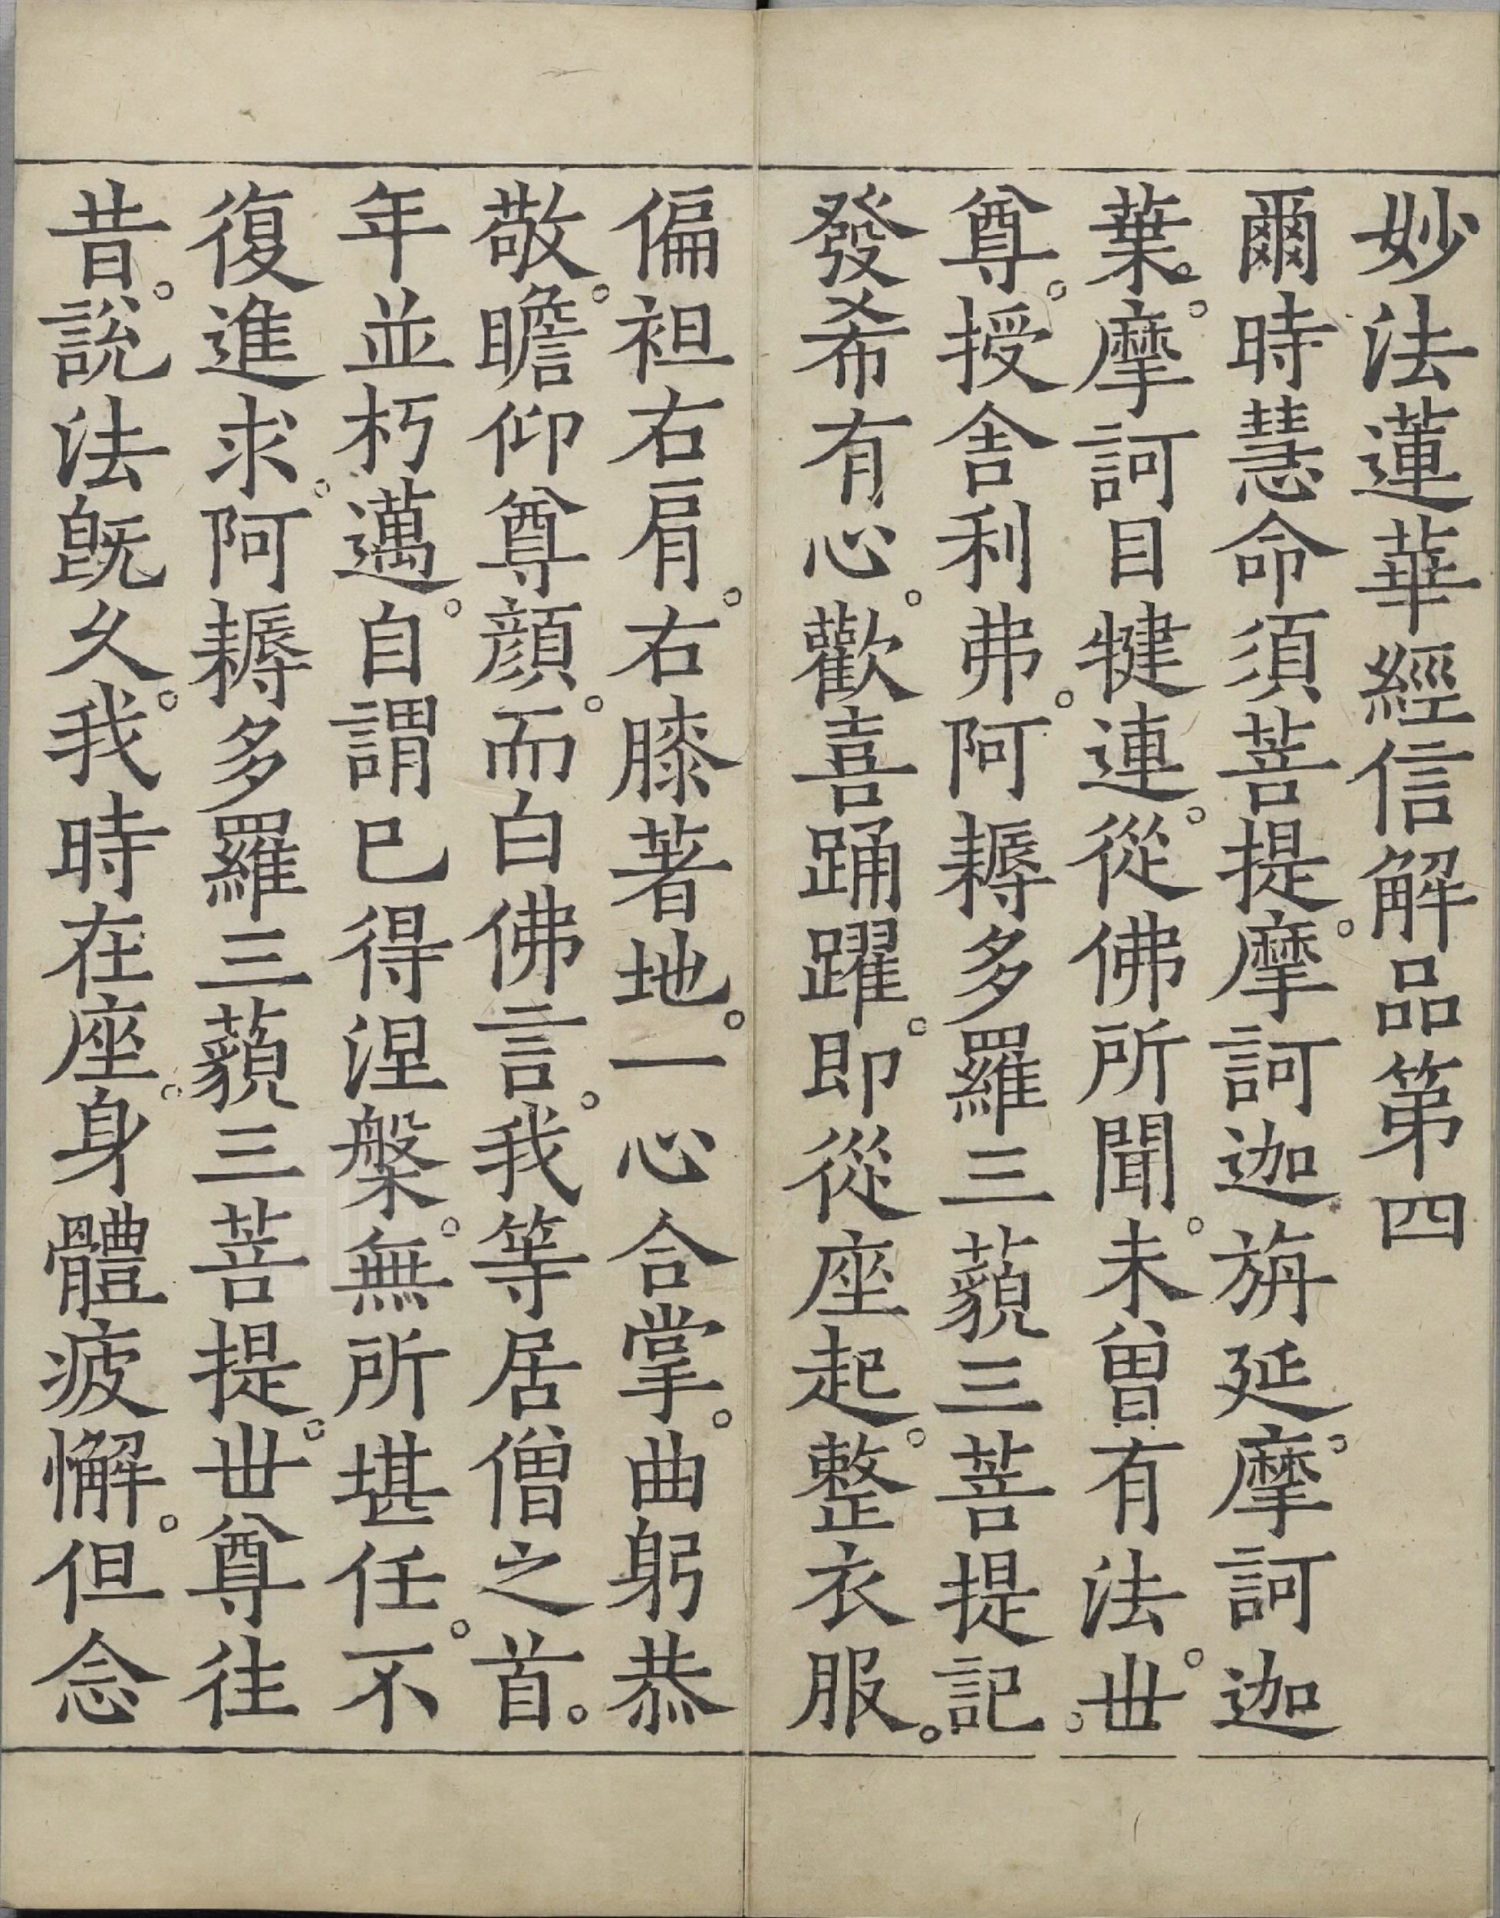 妙法蓮華經信解品第四
爾時慧命須菩提。摩訶迦旃延。摩訶迦
葉。摩訶目犍連。從佛所聞。未曾有法。世
尊。授舍利弗。阿耨多羅三藐三菩提記
發希有心。歡喜踊躍。即從座起。整衣服。
偏袒右肩。右膝著地。一心合掌。曲躬恭
敬。瞻仰尊顏。而白佛言。我等居僧之首。
年並朽邁。自謂已得涅槃。無所堪任。不
復進求。阿耨多羅三藐三菩提。世尊往
昔。說法既久。我時在座。身體疲懈。但念